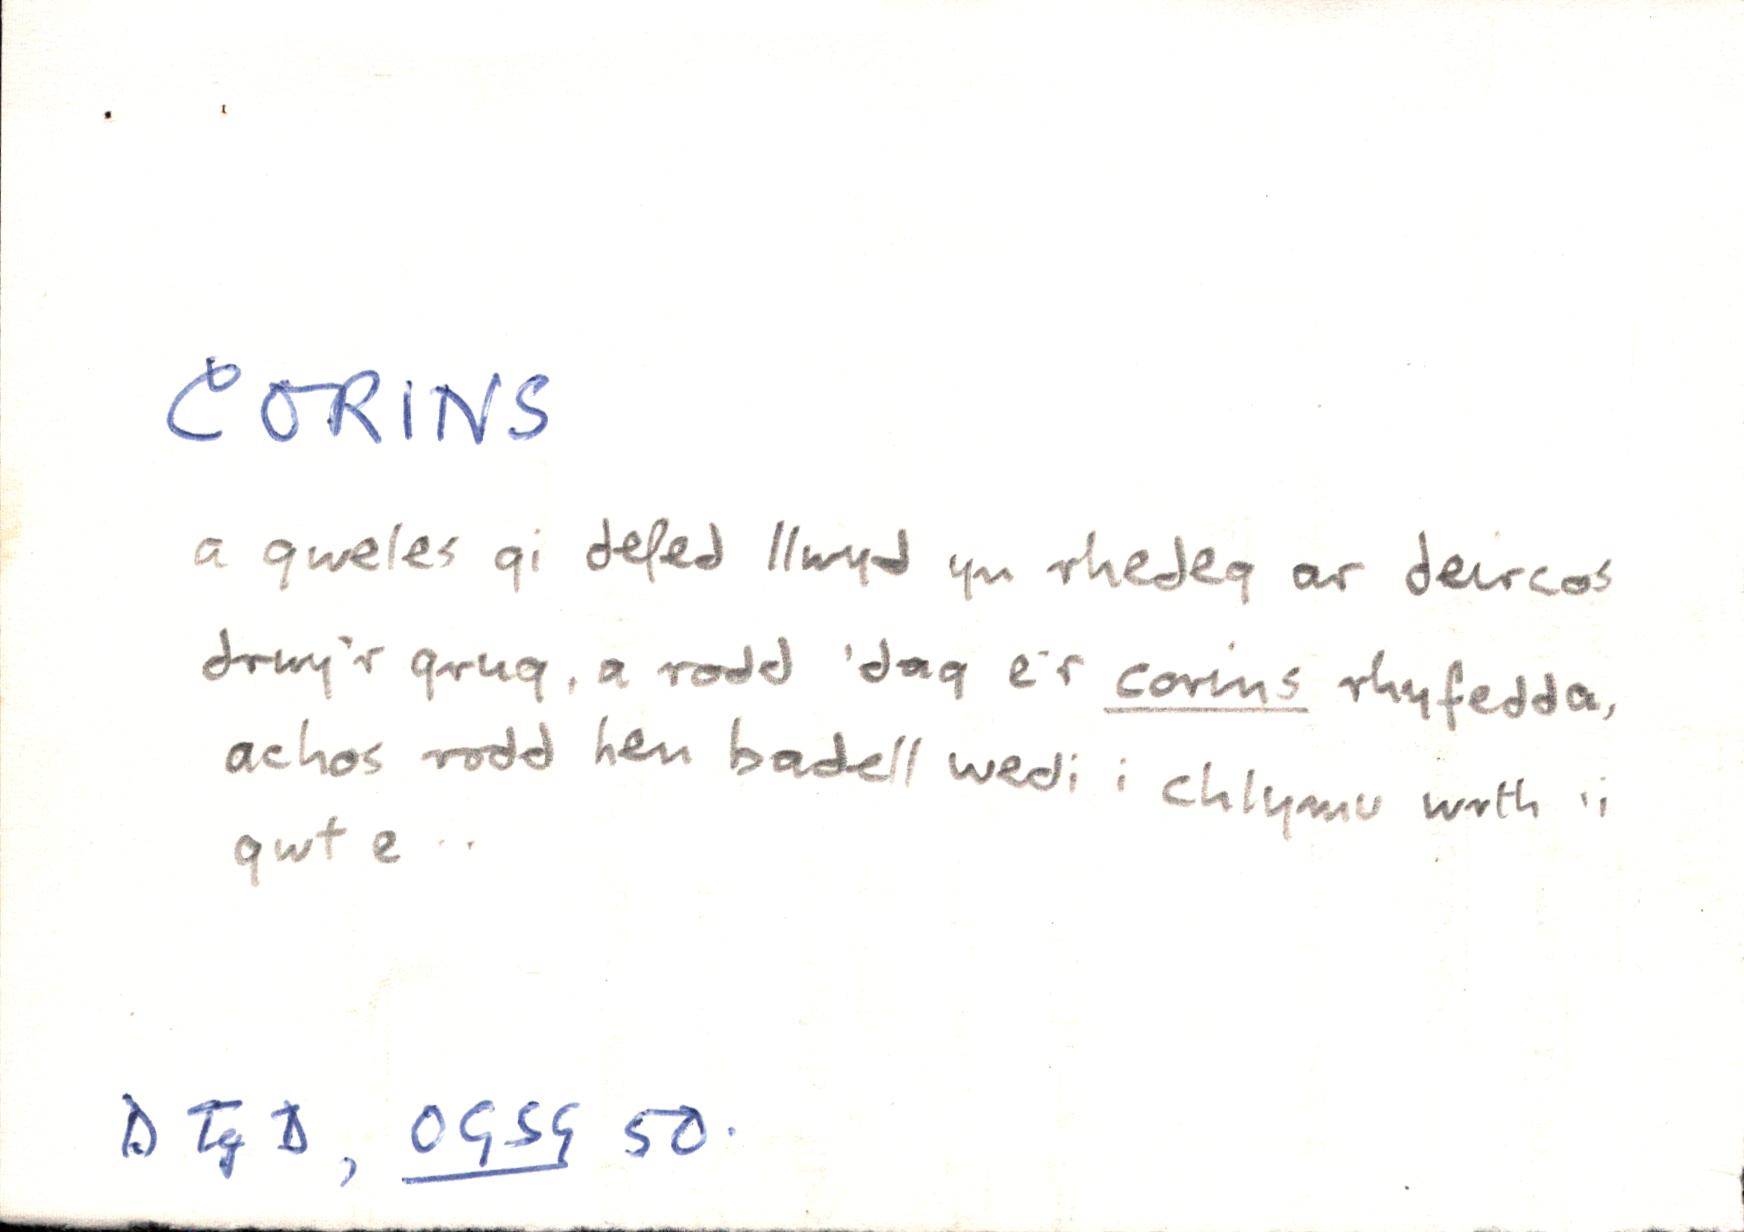 CORINS
a gweles gi defed llwyd yn rhedeg ar deircos
drwy'r grug, a rodd 'dag e'r corins rhyfedda,
achos rodd hen badell wedi i chlymu wrth 'i
gwt e ..
D Tg D, OGSG 50.